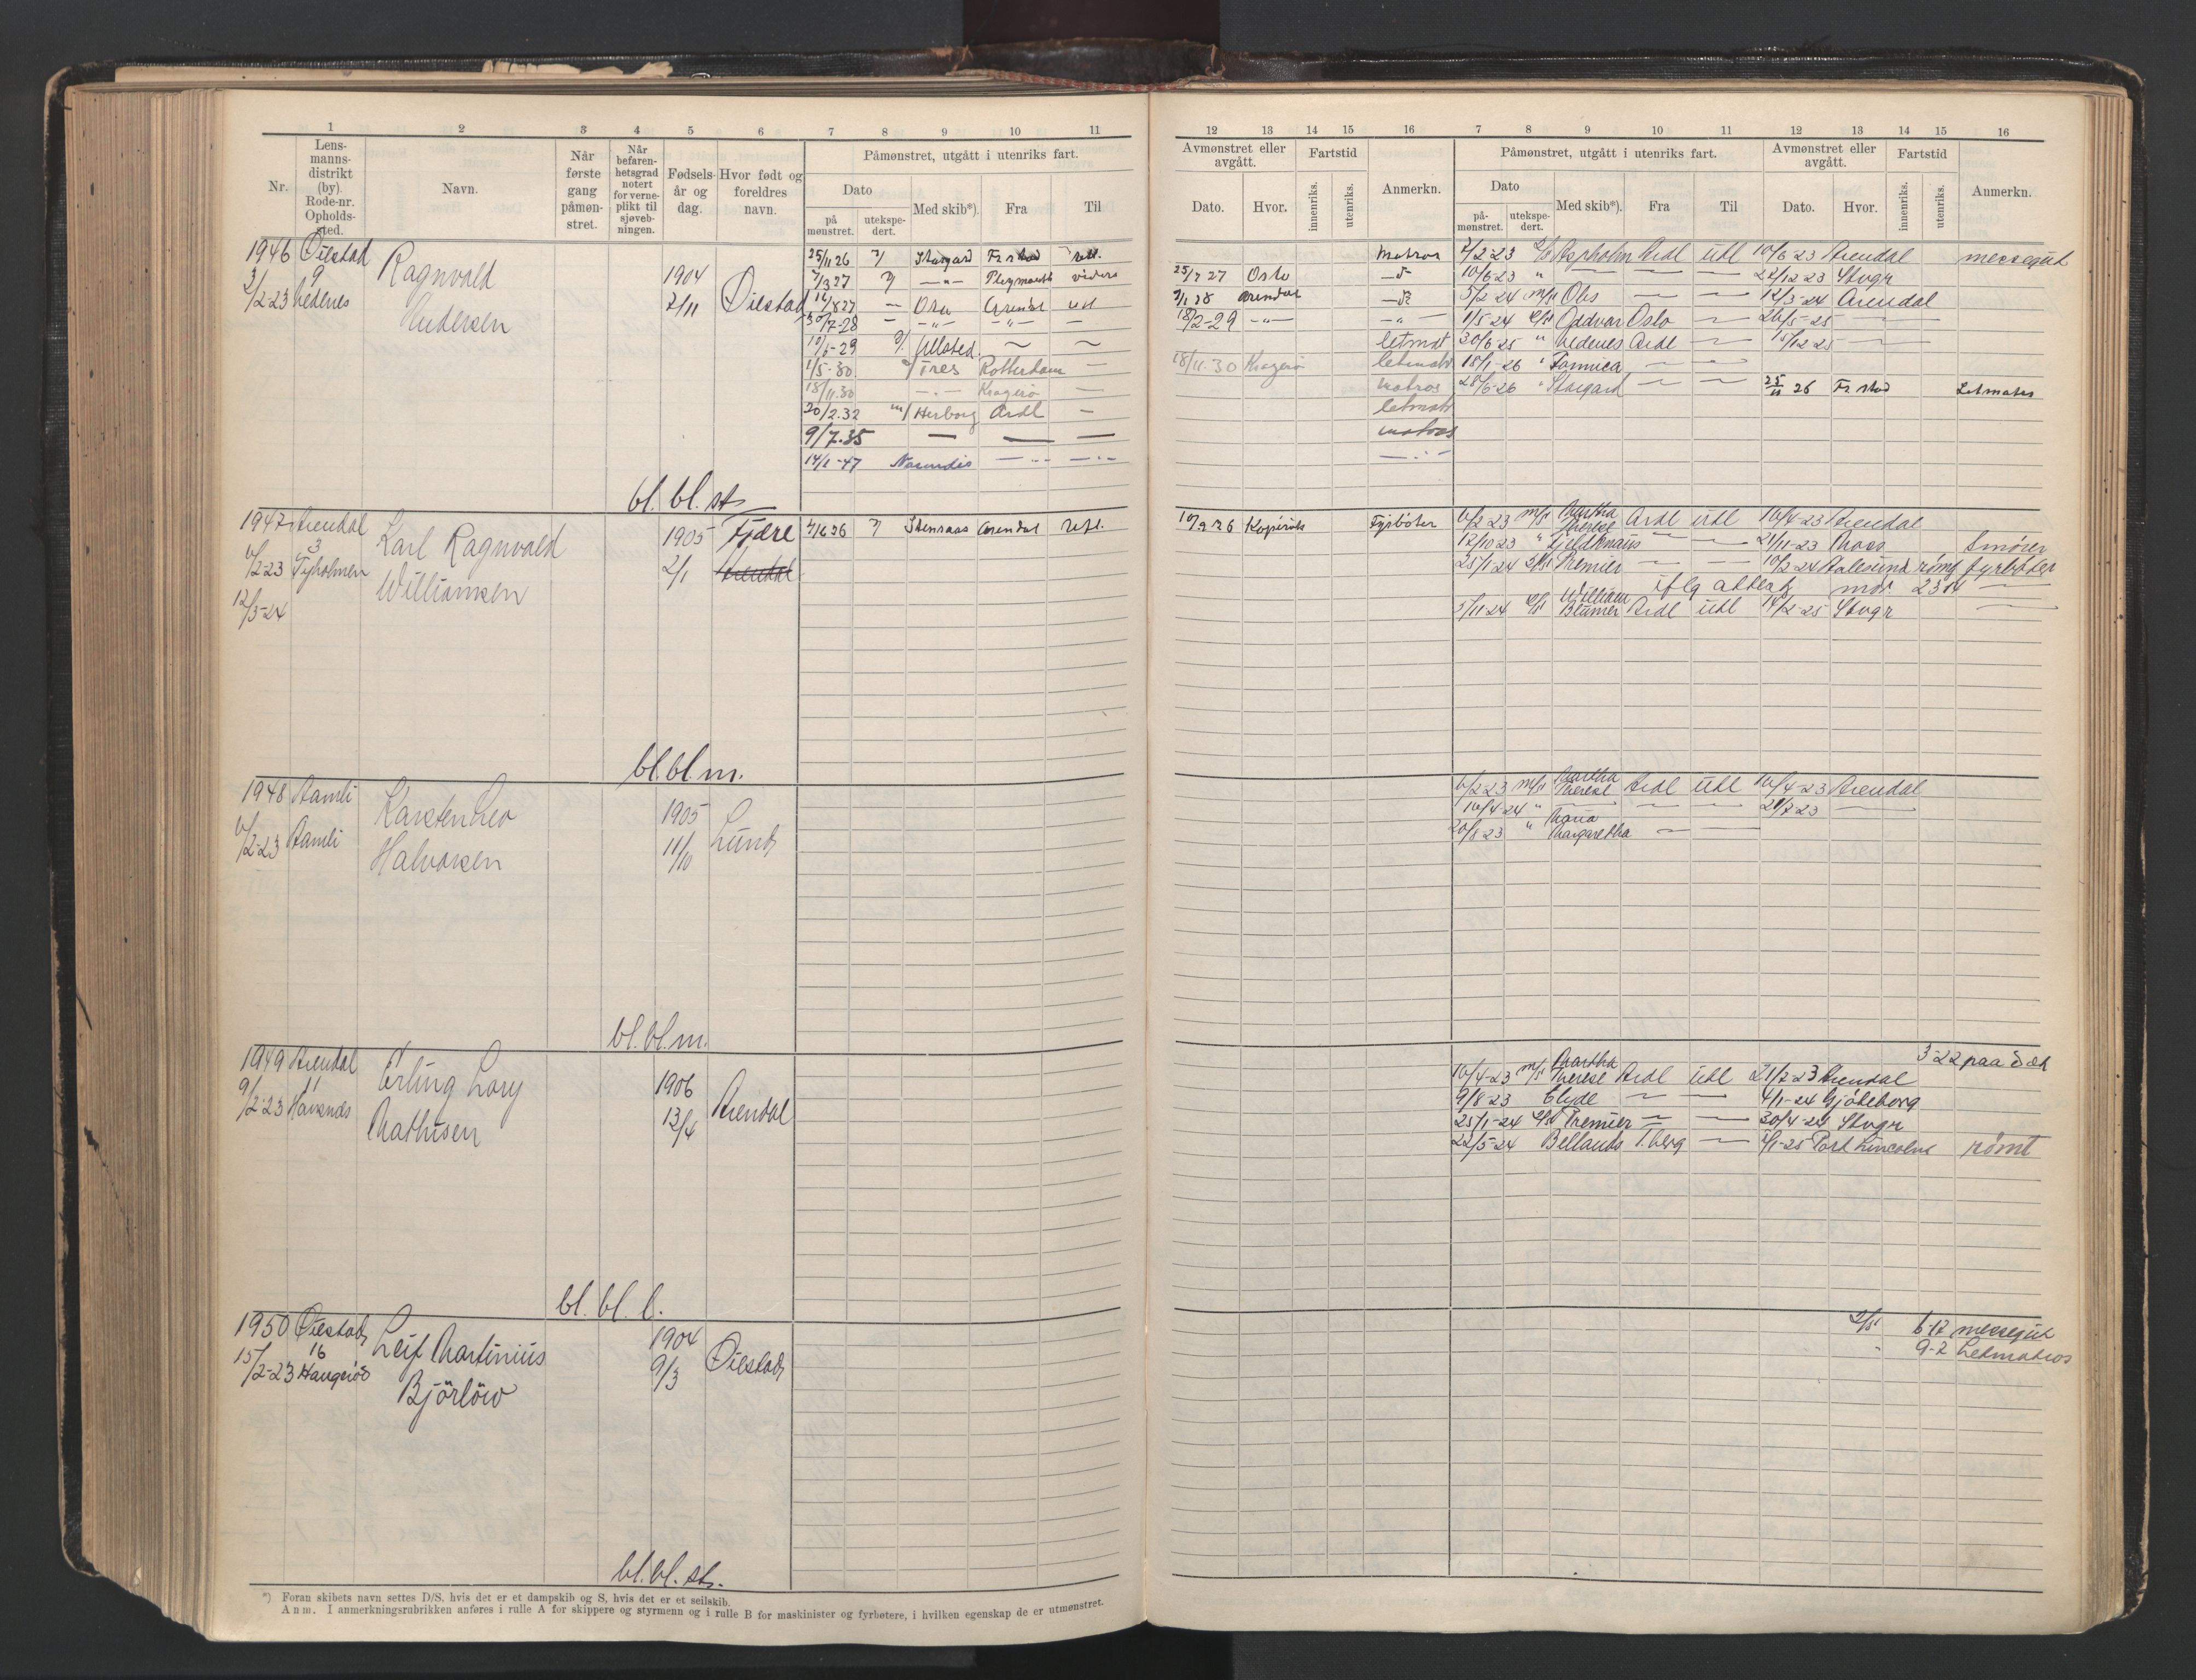 1 2 3 4 5 6 7 8 9 10 11
Nr. Lensmannsdistrikt (by). Rode-nr. Opholdssted. Navn. Når første gang påmønstret. Når befarenhetsgrad notert for verneplikt til sjøvebningen. Fødselsår og dag. Hvor født og foreldres navn. Påmønstret, utgått i utenriks fart.
Dato Med skib*). Fra Til
på mønstret. utekspedert.
1946 Øiestad
9
2/2-23 Nedenes
Ragnvald
Andersen
1904
2/11
Øiestad
25/11 26 Stargard Fr.stad utl.
7/3 27 — " — Plymouth videre
12/8 27 — Oslo Arendal utl
30/7-28 — - " - - " - —
10/6-29 Ullsted
1/5-30 Tres Rotterdam —
18/11.30 - . - Kragerö —
20/2.32 m/ Herborg Ardl —
9/7.35 — — —
14/1-47
bl. bl. st.
1947 Arendal
3
6/2-23 Tyholmen
12/3-24
Karl Ragnvald
Williamsen
1905
2/1
Fjære
Arendal
7/6 26 Stensaas Arendal utl.
bl. bl. m.
1948 Aamli
6/2-23 Aamli
Karsten Leo
Halvorsen
1905
11/10
Lund
bl. bl. m.
1949 Arendal
11
9/2-23
Erling
Mathisen
1906
13/4
Arendal
bl. bl. l.
1950 Øiestad
16
15/2-23
Leif Martinius
Björlöw
1904
9/3
Øiestad
bl. bl. st.
*) Foran skibets navn settes D/S, hvis det er et dampskib og S, hvis det er et seilskib.
Anm. I anmerkningsrubrikken anføres i rulle A for skippere og styrmenn og i rulle B for maskinister og fyrbøtere, i hvilken egenskap de er utmønstret.
12 13 14 15 16 7 8 9 10 11 12 13 14 15 16
Avmønstret eller avgått. Fartstid Anmerkn. Påmønstret, utgått i utenriks fart. Avmønstret eller avgått. Fartstid Anmerkn.
Dato. Hvor. innenriks. utenriks. Dato Med skib*). Fra Til Dato. Hvor. innenriks. utenriks.
påmønstret. utekspedert.
Matros 2/2-23 Aspholm Ardl utl 10/6-23 Arendal messegut
25/7 27 Oslo 10/6-23 " — — 22/12 23 Stvgr
2/1 28 Arendal 5/2-24 m/s Obs — — 12/3-24 Arendal
18/2-29 - " - - " - 1/5-24 Oddvar Oslo — 26/5-25 —
letmat 30/6-25 " Nedenes Ardl — 15/12 25 —
18/11.30 Kragerö letmatr 18/1-26 " — —
matros 28/6-26 " Stargard — — 25/11 26 Fr.stad Letmatros
letmatr
matros
Fyrböter 6/2-23 m/s Martha Therese Ardl utl 10/4-23 Arendal
12/10 23 " Fjeldknaus — — 21/11-23 Moss Smører
25/1-24 Premier — — 10/2-24 Aalesund rømt fyrböter
iflg attest mdr
5/11-24 William Blumer Ardl utl 14/2-25 Stvgr —
6/2-23 m/s Martha Therese Ardl utl 10/4-23 Arendal
10/4-24 " — — — 21/7-23 —
20/8-23 " Maria Margaretha — —
3-22 paa
10/4-23 m/s Martha Therese Ardl utl 21/7-23 Arendal
9/8-23 Clyde — — 4/1-24 Gjøteborg
25/1-24 Premier — — 30/4-24 Stvgr
22/5-24 Bellands T.berg — Port Lincoln rømt
6-12 messegut
9-2 Letmatros